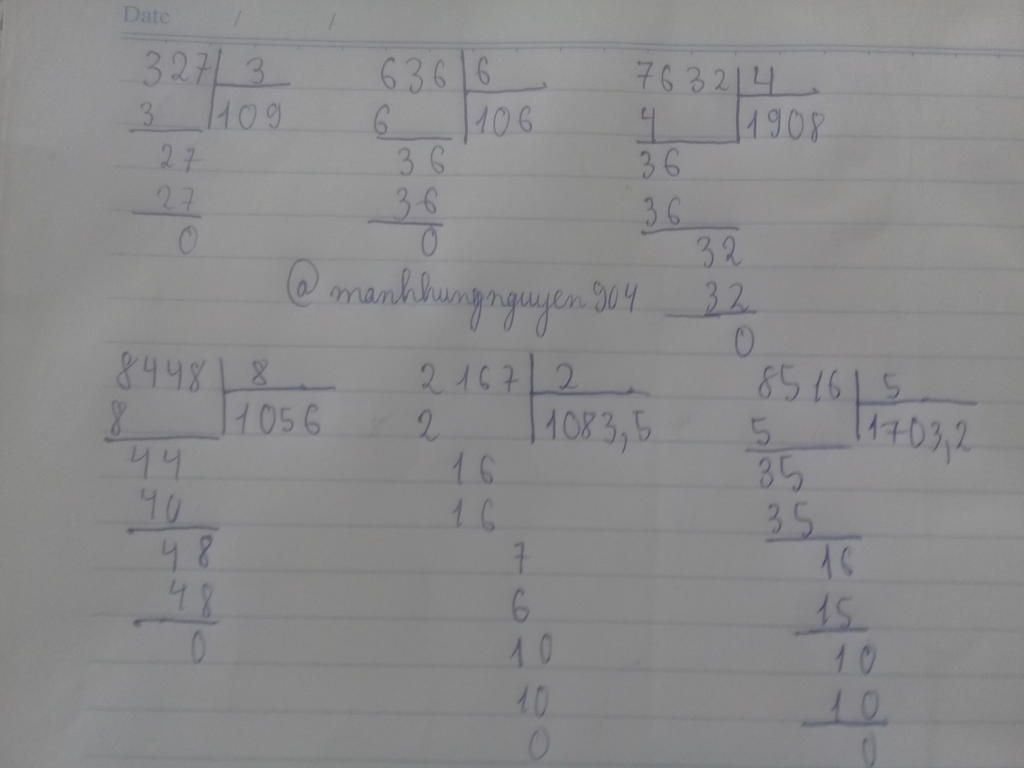 Date / /
327 3
3 109
27
27
0
636 6
6 106
36
36
0
7632 4
4 1908
36
36
32
32
0
@manhhungnguyen904
8448 8
8 1056
44
40
48
48
0
2167 2
2 1083,5
16
16
7
6
10
10
0
8516 5
5 1703,2
35
35
16
15
10
10
0